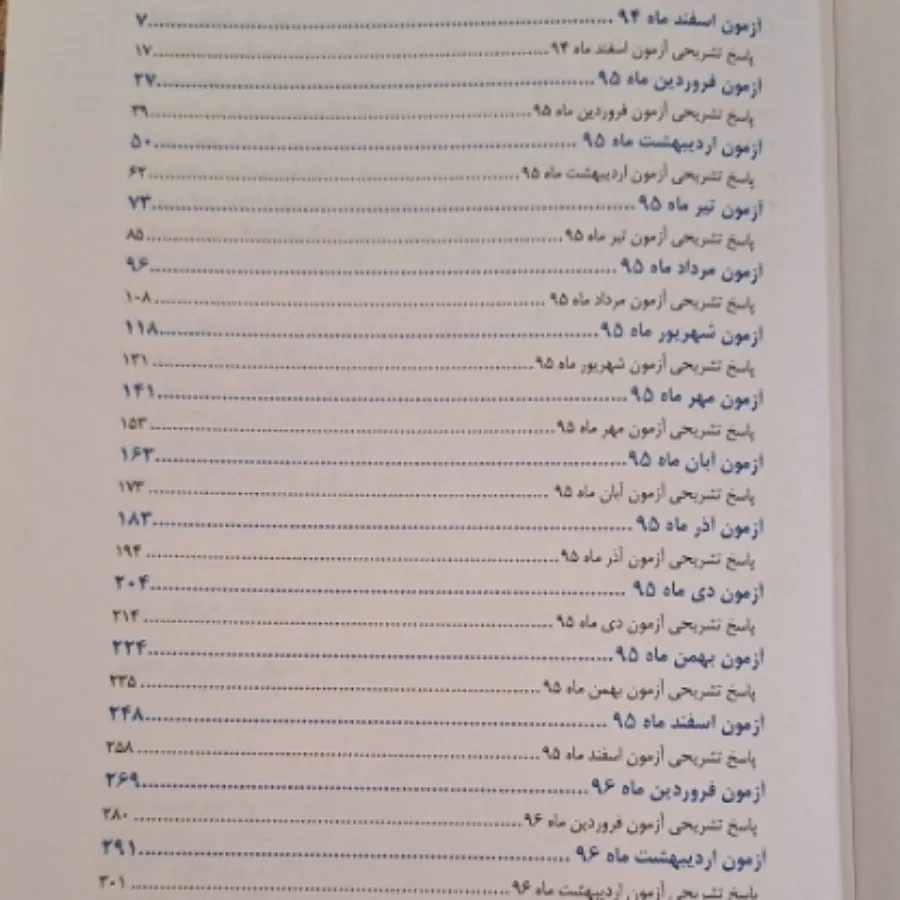 آزمون اسفند ماه ۹۴ ........ ۷
پاسخ تشریحی آزمون اسفند ماه ۹۴ ........ ۱۷
آزمون فروردین ماه ۹۵ ........ ۲۷
پاسخ تشریحی آزمون فروردین ماه ۹۵ ........ ۳۹
آزمون اردیبهشت ماه ۹۵ ........ ۵۰
پاسخ تشریحی آزمون اردیبهشت ماه ۹۵ ........ ۶۲
آزمون تیر ماه ۹۵ ........ ۷۳
پاسخ تشریحی آزمون تیر ماه ۹۵ ........ ۸۵
آزمون مرداد ماه ۹۵ ........ ۹۶
پاسخ تشریحی آزمون مرداد ماه ۹۵ ........ ۱۰۸
آزمون شهریور ماه ۹۵ ........ ۱۱۸
پاسخ تشریحی آزمون شهریور ماه ۹۵ ........ ۱۳۱
آزمون مهر ماه ۹۵ ........ ۱۴۱
پاسخ تشریحی آزمون مهر ماه ۹۵ ........ ۱۵۳
آزمون آبان ماه ۹۵ ........ ۱۶۳
پاسخ تشریحی آزمون آبان ماه ۹۵ ........ ۱۷۳
آزمون آذر ماه ۹۵ ........ ۱۸۳
پاسخ تشریحی آزمون آذر ماه ۹۵ ........ ۱۹۴
آزمون دی ماه ۹۵ ........ ۲۰۴
پاسخ تشریحی آزمون دی ماه ۹۵ ........ ۲۱۴
آزمون بهمن ماه ۹۵ ........ ۲۲۴
پاسخ تشریحی آزمون بهمن ماه ۹۵ ........ ۲۳۵
آزمون اسفند ماه ۹۵ ........ ۲۴۸
پاسخ تشریحی آزمون اسفند ماه ۹۵ ........ ۲۵۸
آزمون فروردین ماه ۹۶ ........ ۲۶۹
پاسخ تشریحی آزمون فروردین ماه ۹۶ ........ ۲۸۰
آزمون اردیبهشت ماه ۹۶ ........ ۲۹۱
پاسخ تشریحی آزمون اردیبهشت ماه ۹۶ ........ ۳۰۱